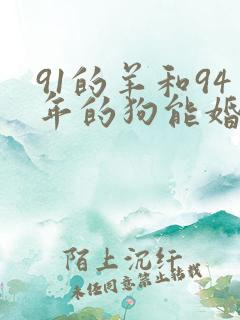 91的羊和94
年的狗能婚
陌上沉纤
未经同意禁止转载